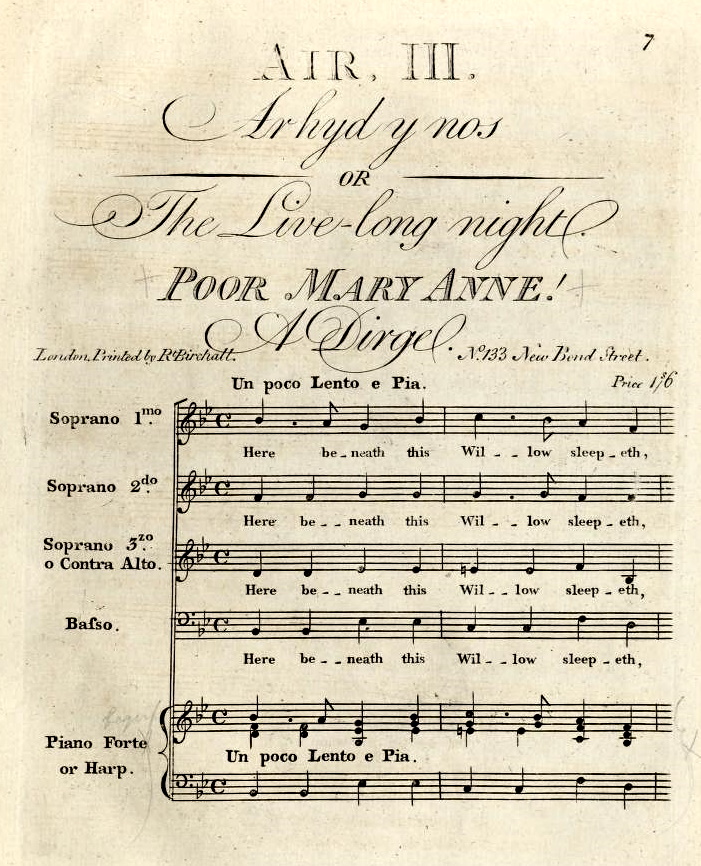 7
AIR, III.
Ar hyd y nos
OR
The Live-long night.
POOR MARY ANNE!
A Dirge.
London, Printed by Rt Birchall. No. 133 New Bond Street.
Un poco Lento e Pia. Price 1s/6
Soprano 1mo.
Here be - neath this Wil - - low sleep - eth,
Soprano 2do.
Here be - - neath this Wil - - low sleep - eth,
Soprano 3zo.
o Contra Alto.
Here be - - neath this Wil - - low sleep - eth,
Baſso.
Here be - - neath this Wil - - low sleep - eth,
Piano Forte
or Harp.
Un poco Lento e Pia.